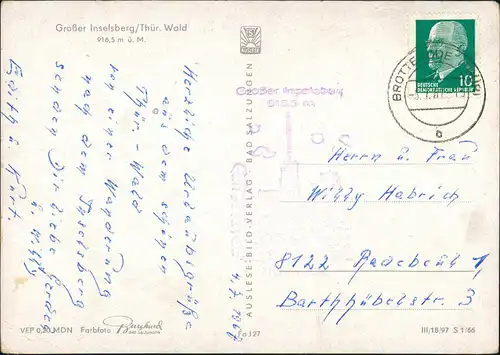 Großer Inselsberg/Thür. Wald
916,5 m ü. M.
Herzliche Urlaubsgrüße
aus dem schönen
Thür.-Wald
von einer Wanderung
nach dem Inselsberg
senden Dir liebe Gerda
u. Willy
Edith u. Kurt.
4.7.1967
AUSLESE-BILD-VERLAG · BAD SALZUNGEN
Großer Inselsberg
916,5 m
10
DEUTSCHE
DEMOKRATISCHE REPUBLIK
b
Herrn u. Frau
Willy Habrich
8122 Radebeul 1,
Barthhübelstr. 3
VEP 0,20 MDN Farbfoto Burghard
BAD SALZUNGEN
Fo 127
III/18/97 S 1/66